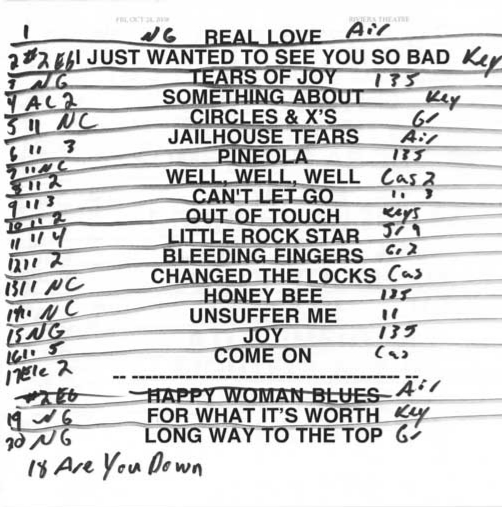 FRI, OCT 24, 2008 RIVIERA THEATRE
1 NG REAL LOVE Air
2 #2 Eb I JUST WANTED TO SEE YOU SO BAD Key
3 NG TEARS OF JOY 135
4 AC 2 SOMETHING ABOUT Key
5 11 NC CIRCLES & X'S Gr
6 11 3 JAILHOUSE TEARS Air
7 11 NC PINEOLA 135
8 11 2 WELL, WELL, WELL Cas 2
9 11 3 CAN'T LET GO 11 3
10 11 2 OUT OF TOUCH Keys
11 11 4 LITTLE ROCK STAR
12 11 2 BLEEDING FINGERS Gr 2
13 11 NC CHANGED THE LOCKS Cas
14 11 NC HONEY BEE 135
15 NG UNSUFFER ME 11
16 11 5 JOY 135
17 Ele 2 COME ON Cas
-- ---------------------------------------- --
#2 Eb HAPPY WOMAN BLUES Air
19 NG FOR WHAT IT'S WORTH Key
20 NG LONG WAY TO THE TOP Gr
18 Are You Down